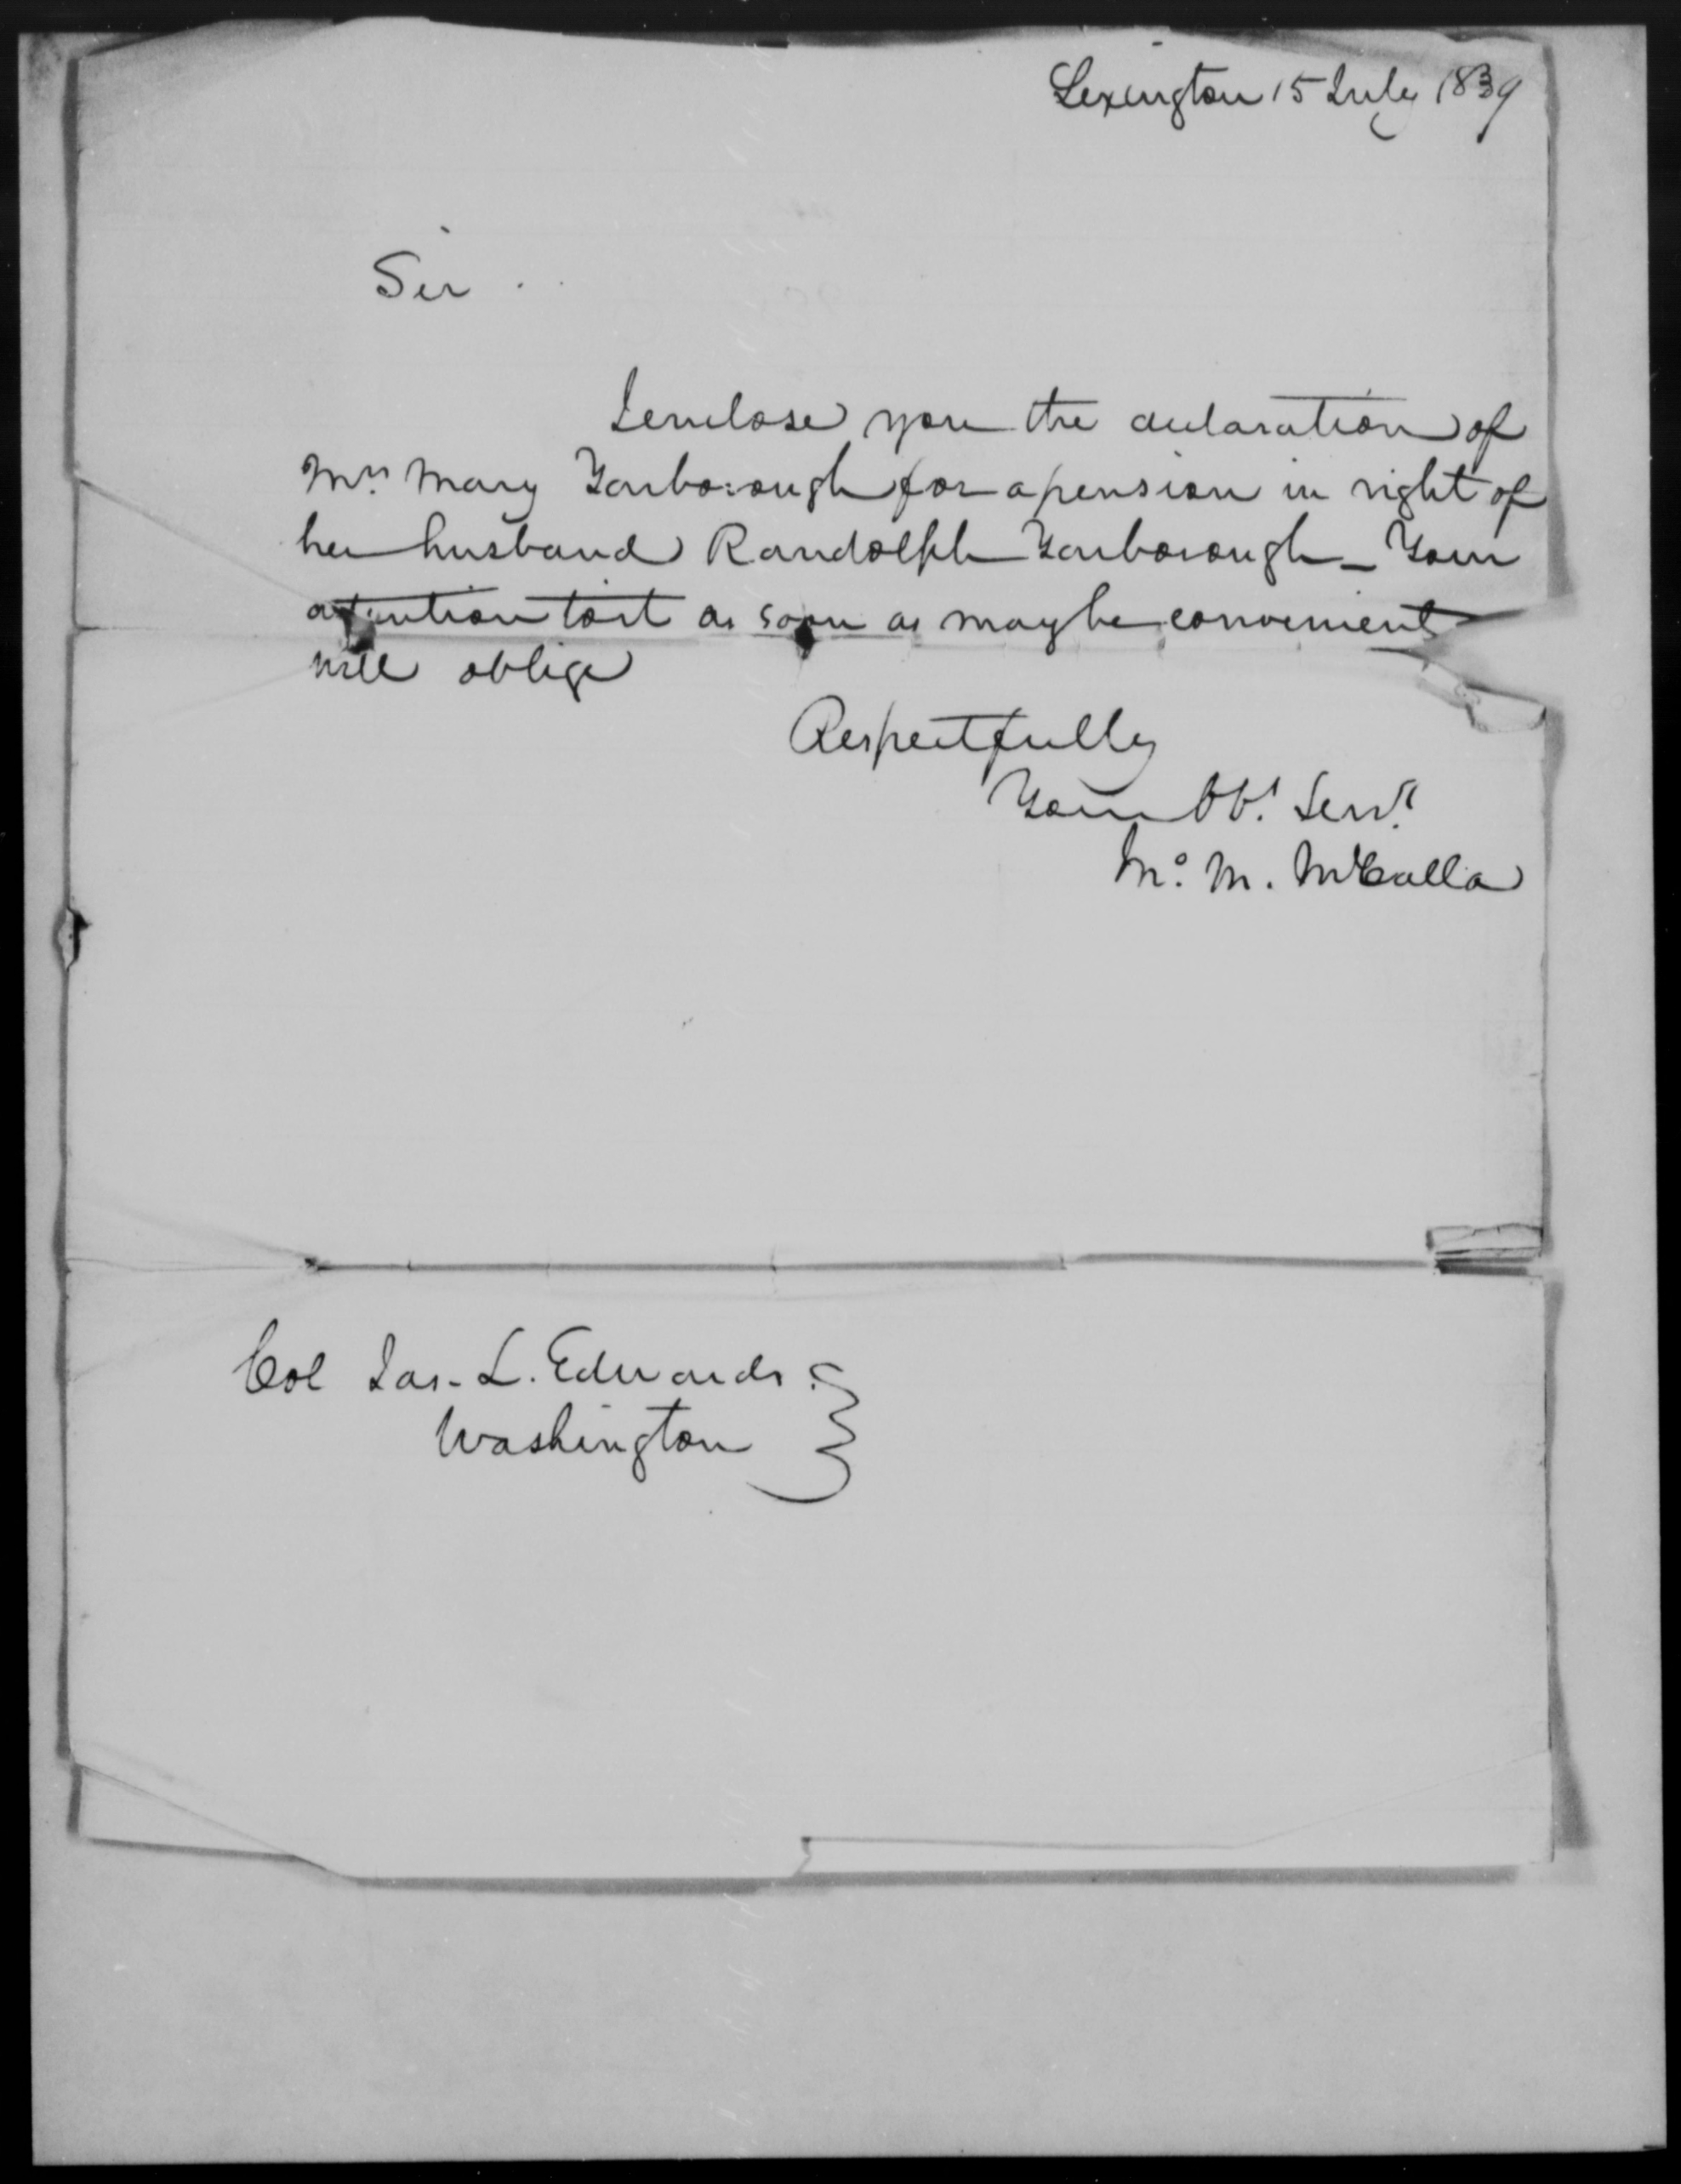 Lexington 15 July 1839
Sir.
I enclose you the declaration of
Mrs. Mary Yarborough for a pension in right of
her husband Randolph Yarborough _ Your
attention to it as soon as may be convenient
will oblige
Respectfully
Your Obt. Servt.
Jno. M. McCalla
Col Jas. L. Edwards.
Washington